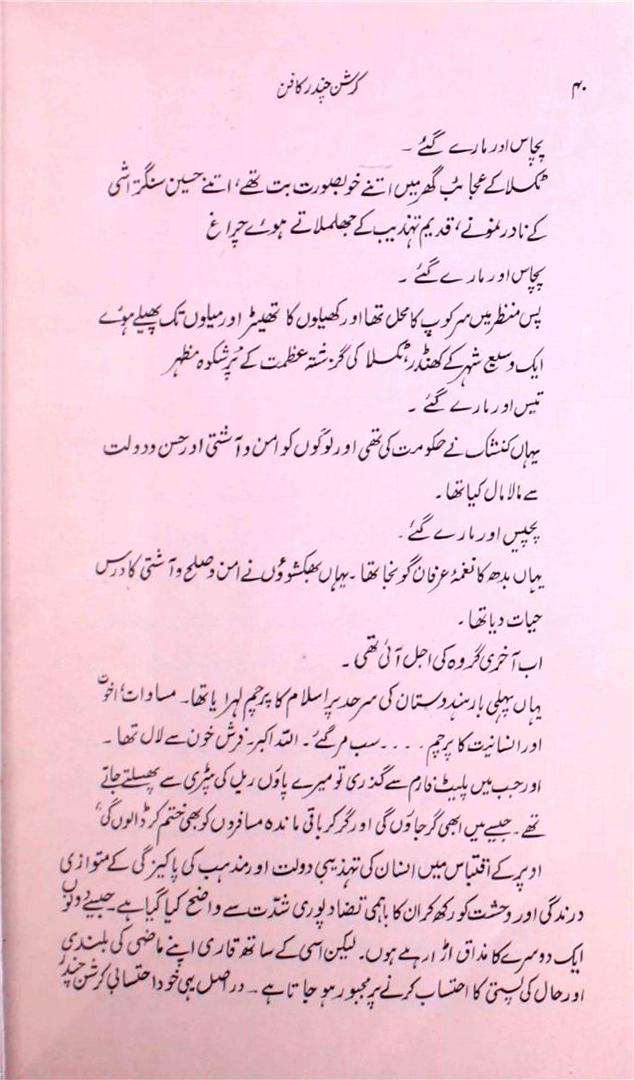 ۴۰ کرشن چندر کا فن
پچاس اور مارے گئے ۔
ٹکسلا کے عجائب گھر میں اتنے خوبصورت بت تھے، اتنے حسین سنگتراشی
کے نادر نمونے، قدیم تہذیب کے جھلملاتے ہوئے چراغ
پچاس اور مارے گئے ۔
پس منظر میں سرکوپ کا محل تھا اور کھیلوں کا تھیٹر اور میلوں تک پھیلے ہوئے
ایک وسیع شہر کے کھنڈر، ٹکسلا کی گزشتہ عظمت کے پُرشکوہ مظہر
تیس اور مارے گئے ۔
یہاں کنشک نے حکومت کی تھی اور لوگوں کو امن و آشتی اور حسن و دولت
سے مالا مال کیا تھا ۔
پچیس اور مارے گئے ۔
یہاں بدھ کا نغمۂ عرفان گونجا تھا ۔ یہاں بھکشوؤں نے امن و صلح و آشتی کا درس
حیات دیا تھا ۔
اب آخری گروہ کی اجل آئی تھی ۔
یہاں پہلی بار ہندوستان کی سرحد پر اسلام کا پرچم لہرایا تھا ۔ مساوات، اخوت
اور انسانیت کا پرچم . . . . سب مر گئے ۔ اللہ اکبر ۔ فرش خون سے لال تھا ۔
اور جب میں پلیٹ فارم سے گذری تو میرے پاؤں ریل کی پٹری سے پھسلتے جاتے
تھے ۔ جیسے میں ابھی گر جاؤں گی اور گر کر باقی ماندہ مسافروں کو بھی ختم کر ڈالوں گی،
اوپر کے اقتباس میں انسان کی تہذیبی دولت اور مذہب کی پاکیزگی کے متوازی
درندگی اور وحشت کو رکھ کر ان کا باہمی تضاد پوری شدّت سے واضح کیا گیا ہے ۔ جیسے دونوں
ایک دوسرے کا مذاق اڑا رہے ہوں ۔ لیکن اسی کے ساتھ قاری اپنے ماضی کی بلندی
اور حال کی پستی کا احتساب کرنے پر مجبور ہو جاتا ہے ۔ دراصل یہی خود احتسابی کرشن چندر